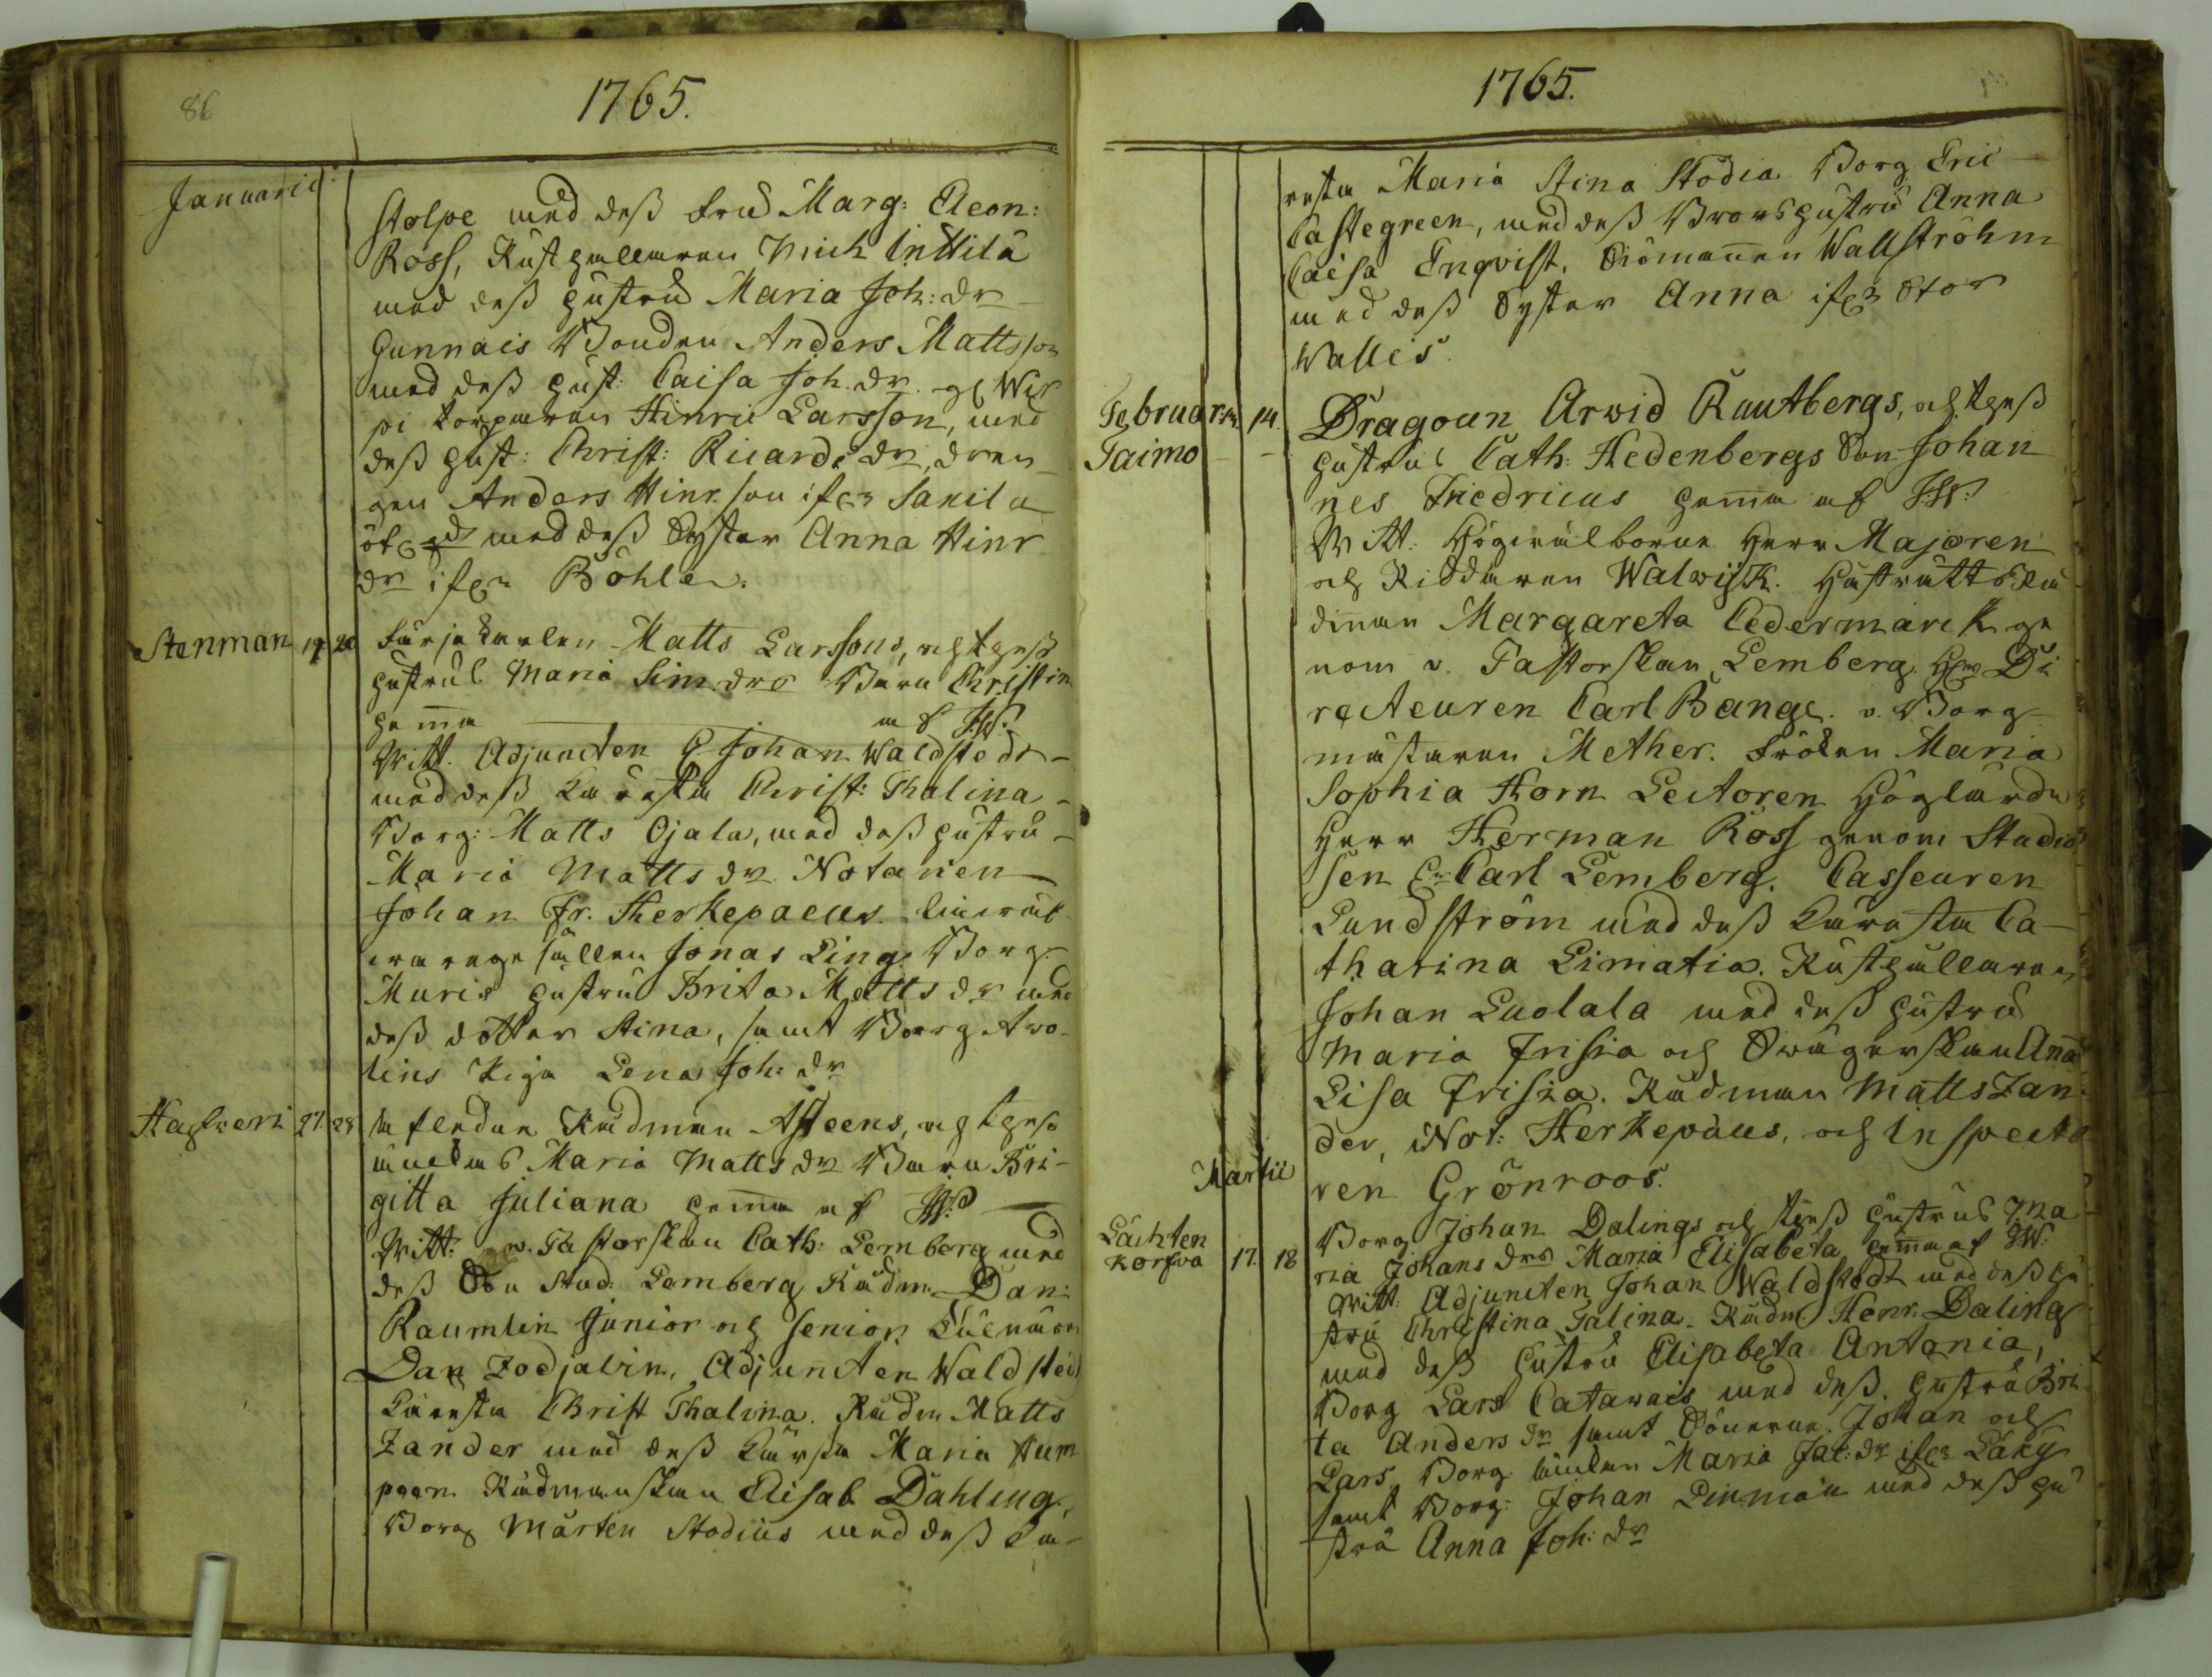 86
1765.
Januarii
Stolpe med deß Fru Marg: Eleon:
Ross, Rusthållaren Mich Inttilä
med deß hustru Maria Joh: dr
Gunnais Bonden Anders Mattsson
med deß hust: Caisa Joh. dr.
pi torparen Hinric Larsson, med
deß hust: Christ: Ricards dr, dren
gen Anders Hinr. son ifrn Sanila
med deß Syster Anna Hinr
dr ifrn Böhle.
Stenman 19 20 Färjekarlen Matts Larssons, och Thess
hustrus Maria Sim. drs Barn Christin
hemma af JW.
Witt. Adjuncten Johan Waldstedt
med deß Käresta Christ: Thalina
Borg: Matts Ojala, med deß hustru
Maria Matts dr Notarien
Johan Fr. Herkepaeus.
gesällen Jonas Ling. Borg.
Muris hustru Brita Matts dr med
deß dotter Stina, samt Borg. Avo-
lins Piga Lena Joh: dr
Hastveri 27. 28 Afledne Rådman Asteens, och Thess
Enckas Maria Matts dr Barn Bri-
gitta Juliana hemma af JW.
Witt: v. Pastorskan Cath: Lemberg med
deß Son Stud: Lemberg Rådm. Dan:
Raumlin Junior och Senior
Dan Todjalin. Adjuncten Waldstedt
Käresta Christ Thalina. Rådm Matts
Zander med deß Kärsta Maria Hum
peen Rådmanskan Elisab Dahling,
Borg Mårten Stodius med deß Kä-
1765.
resta Maria Stina Stodia Borg Eric
Castegreen, med deß Brorshustru Anna
Caisa Enqvist. Wallströhm
med deß Syster Anna ifrn Stor
Walles.
Februarii 14. Dragoun Arvid Rautbergs, och Theß
Taimo hustrus Cath: Hedenbergs Son Johan
nes Fredricus hemma af JW.
Witt: Högvälborne Herr Majoren
och Riddaren Walwijk.
Margareta Cedermarck ge
nom v. Pastorskan Lemberg. Hr Di
recteuren Carl Bange. v. Borg-
mästaren Mether. Fröken Maria
Sophia Horn Lectoren Höglärde
Herr Herman Ross genom Studio
sen Carl Lemberg. Casseuren
Lundström med deß Käresta Ca-
tharina Limatia. Rusthållaren
Johan Luolala med deß hustru
Maria Frisia och Swägerskan Anna
Lisa Frisia. Rådman Matts Zan-
der, Not: Herkepæus, och Inspecto
ren Grönroos.
Martii
Lähten
korfva 17. 18 Borg Johan Dalings och Theß hustrus Ma
ria Johans drs Maria Elisabeta hemma af JW.
Witt: Adjuncten Johan Waldstedt med deß hu
stru Christina Talina. Rådm: Henr. Daling
med deß hustru Elisabeta Antonia,
Borg Lars Catawais med deß hustru Bri
ta Anders dr samt Sönerne Johan och
Lars, Borg Enckan Maria Jac: dr ifrn Läky
samt Borg: Johan Linman med deß hu
stru Anna Joh: dr